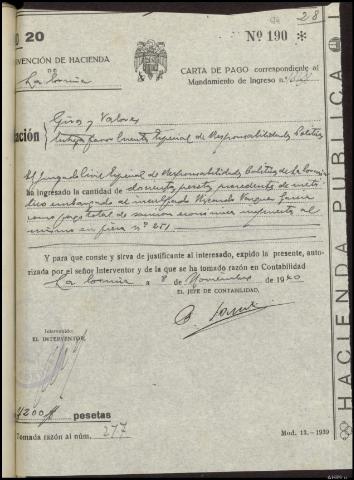 28
O 20
Nº 190 *
VENCIÓN DE HACIENDA
DE
La Coruña
CARTA DE PAGO correspondiente al
Mandamiento de Ingreso n.º
Giros y Valores
ación
favor Cuenta Especial de Responsabilidades Políticas
El Juzgado Civil Especial de Responsabilidades Políticas de La Coruña
ha ingresado la cantidad de doscientas pesetas procedente de metá-
lico embargado al inculpado Ricardo Vazquez
como pago total de sancion economica impuesta al
mismo en pieza nº 251.
Y para que conste y sirva de justificante al interesado, expido la presente, auto-
rizada por el señor Interventor y de la que se ha tomado razón en Contabilidad
La Coruña a 8 de Noviembre de 1940
EL JEFE DE CONTABILIDAD,
Intervenido:
EL INTERVENTOR,
200 pesetas
Tomada razón al núm. 277
Mod. 13.-1939
HACIENDA PUBLICA